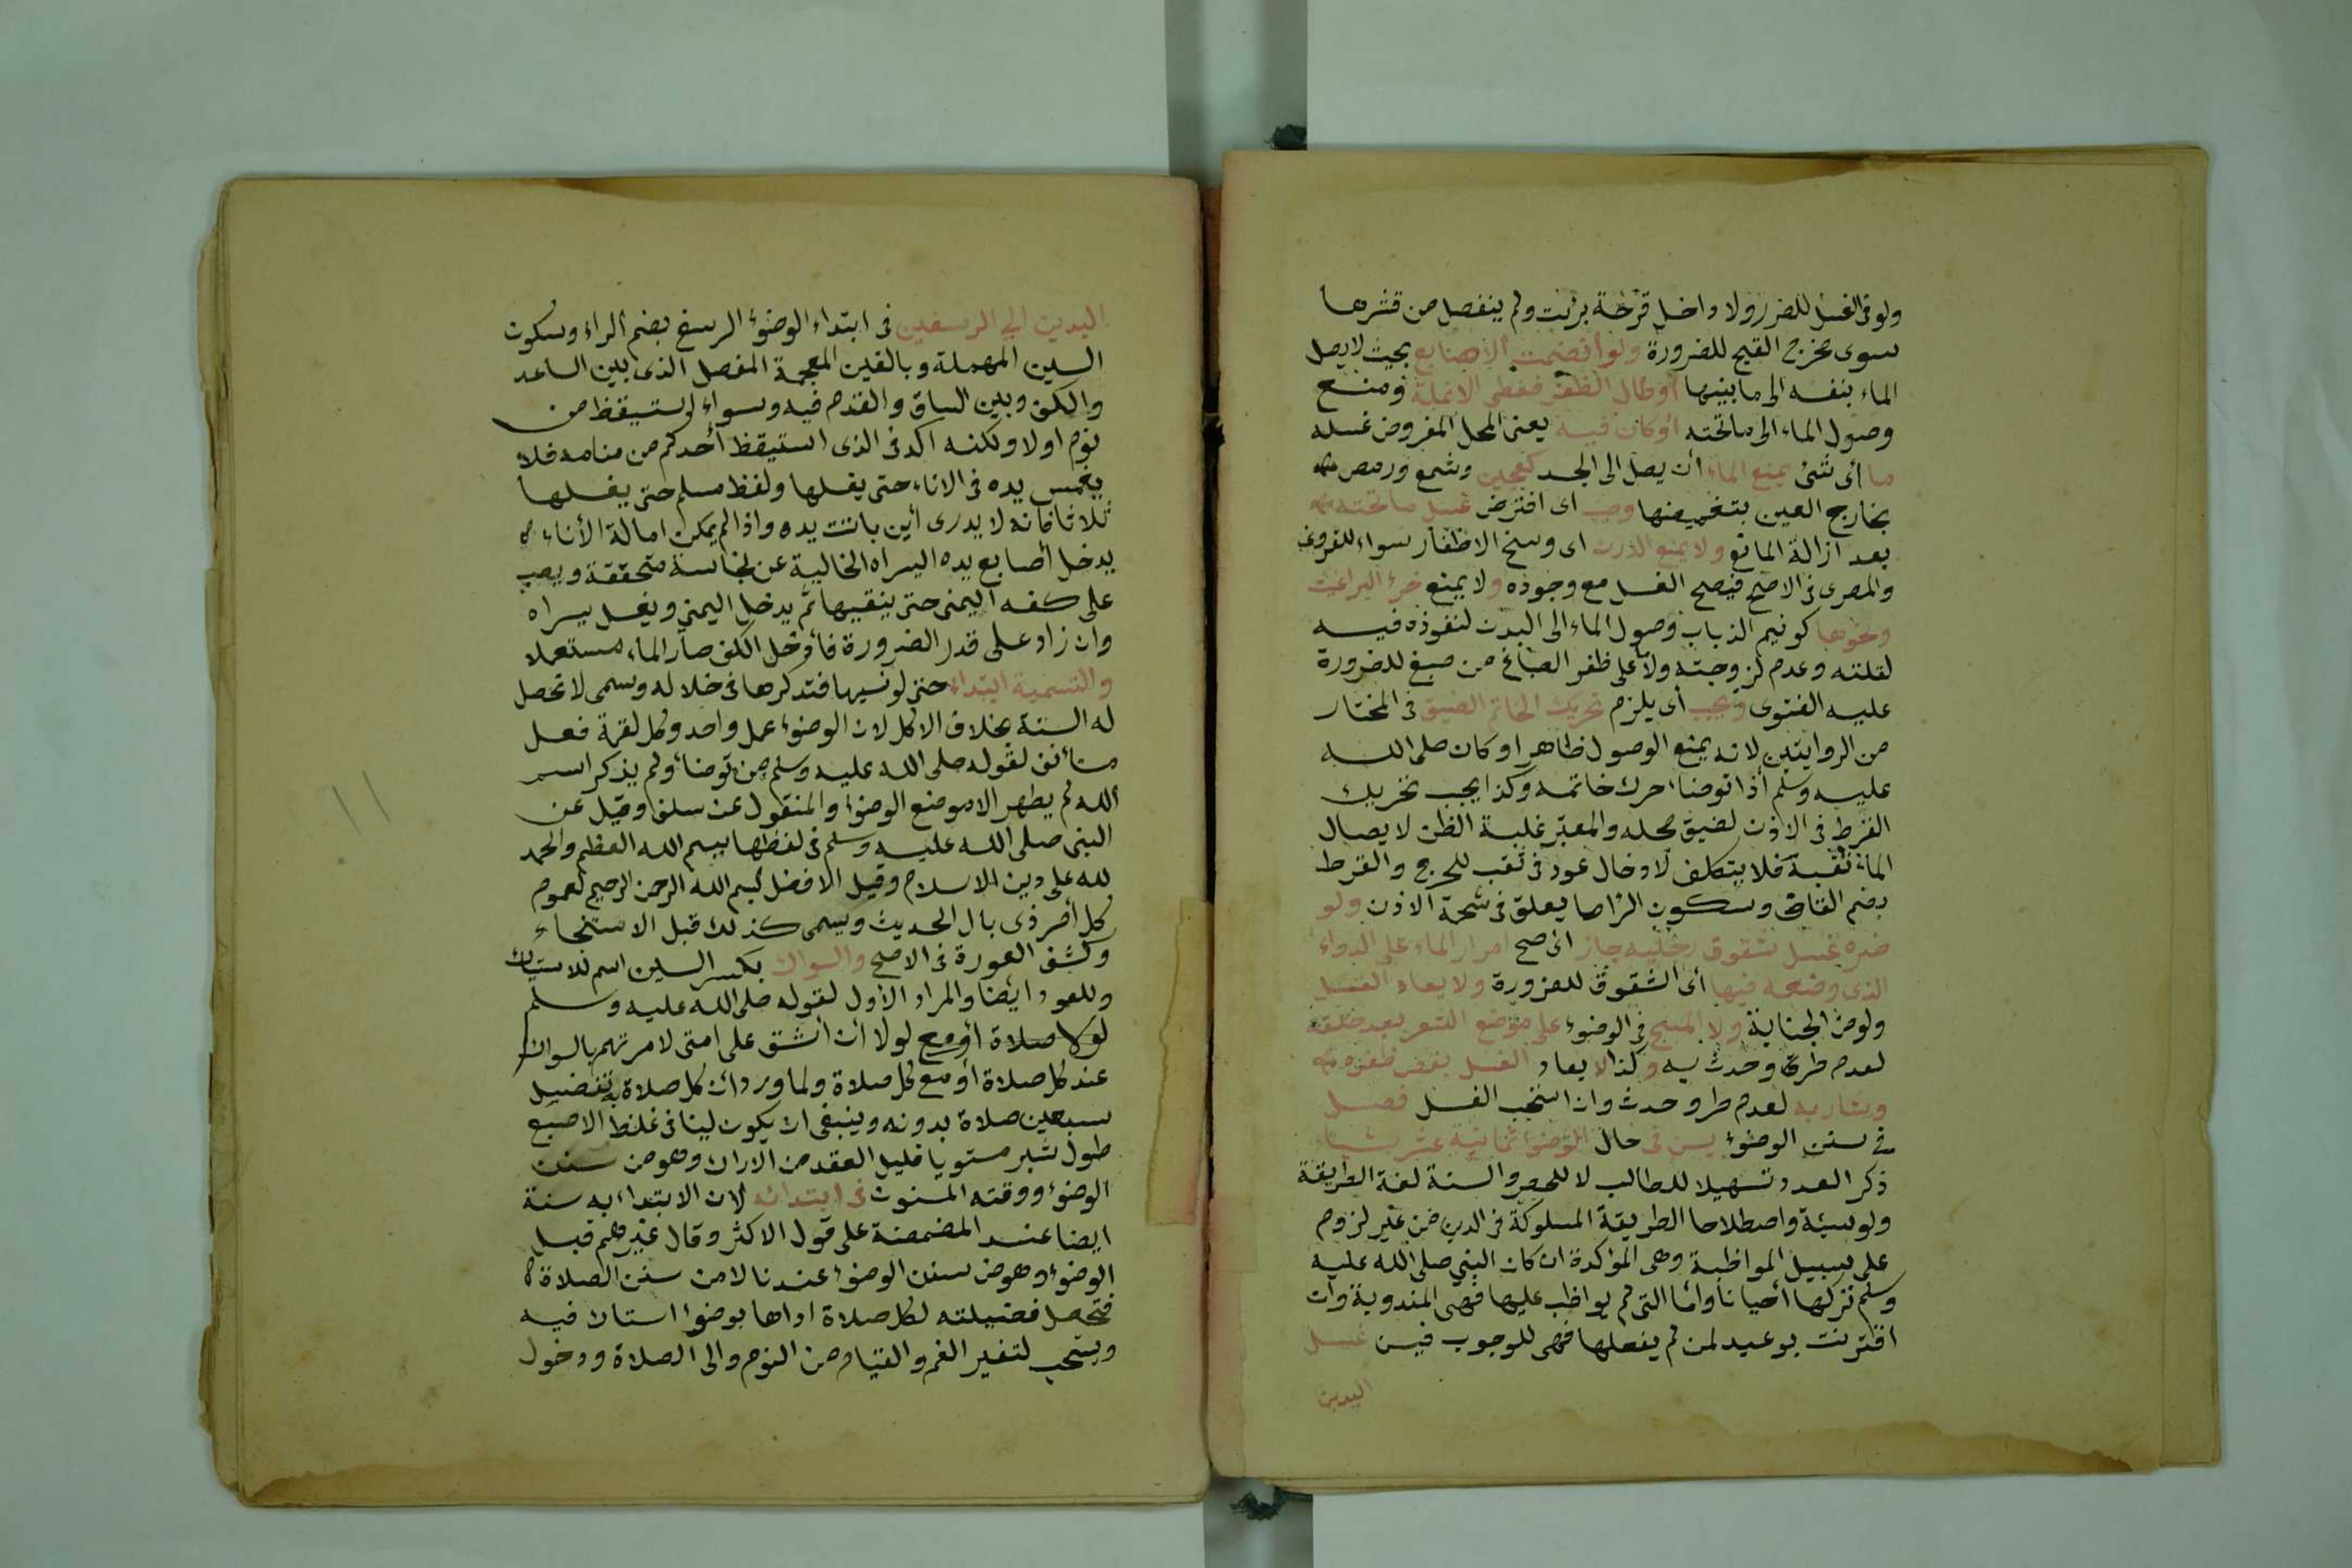 ولو فى الغسل للضرر ولا داخل قرحة برئت ولم ينفصل من قشرها
سوى مخرج القيح للضرورة ولو انضمت الاصابع بحيث لا يصل
الماء بنفسه الى ما بينها أو طال الظفر فغطى الانملة ومنع
وصول الماء الى ما تحته أو كان فيه يعنى المحل المفروض غسله
ما أى شئ يمنع الماء أن يصل الى الجسد كعجين وشمع ورمص
بخارج العين بتغميضها وجب اى افترض غسل ما تحته
بعد ازالة المانع ولا يمنع الدرن اى وسخ الاظفار سواء للقروى
والمصرى فى الاصح فيصح الغسل مع وجوده ولا يمنع خرء البراغيث
ونحوها كونيم الذباب وصول الماء الى البدن لنفوذه فيه
لقلته وعدم لزوجته ولا على ظفر الصباغ من صبغ للضرورة
عليه الفتوى ويجب أى يلزم تحريك الخاتم الضيق فى المختار
من الروايتين لانه يمنع الوصول ظاهرا وكان صلى الله
عليه وسلم أذا توضا، حرك خاتمه وكذا يجب تحريك
القرط فى الاذن لضيق محله والمعتبر غلبة الظن لايصال
الماء ثقبه فلا يتكلف لادخال عود فى ثقب للحرج والقرط
بضم القاف وسكون الرا ما يعلق فى شحمة الاذن ولو
ضره غسل شقوق رجليه جاز اى صح امرار الماء على الدواء
الذى وضعه فيها أى الشقوق للضرورة ولا يعاد الغسل
ولو من الجنابة ولا المسح فى الوضوء على موضع الشعر بعد حلقه
لعدم طرو حدث به وكذا لا يعاد الغسل بقص ظفره
وشاربه لعدم طرو حدث وان استحب الغسل فصل
فى سنن الوضوء يسن فى حال الوضوء ثمانية عشر شيئا
ذكر العدد تسهيلا للطالب لا للحصر والسنة لغة الطريقة
ولو سيئة واصطلاحا الطريقة المسلوكة فى الدين من غير لزوم
على سبيل المواظبة وهى المؤكدة ان كان النبى صلى الله عليه
وسلم تركها أحيانا وأما التى لم يواظب عليها فهى المندوبة وان
اقترنت بوعيد لمن لم يفعلها فهى للوجوب فيسن غسل
اليدين
اليدين الى الرسغين فى ابتداء الوضوء الرسغ بضم الراء وسكون
السين المهملة وبالغين المعجمة المفصل الذى بين الساعد
والكف وبين الساق والقدم فيه وسواء استيقظ من
نوم اولا ولكنه اكد فى الذى استيقظ أحدكم من منامه فلا
يغمس يده فى الاناء حتى يغسلها ولفظ مسلم حتى يغسلها
ثلاثا فانه لا يدرى أين باتت يده واذا لم يمكن امالة الأناء
يدخل أصابع يده اليسراه الخالية عن نجاسة متحققة ويصب
على كفه اليمنى حتى ينقيها ثم يدخل اليمنى ويغسل يسراه
وان زاد على قدر الضرورة فأدخل الكف صار الماء مستعملا
والتسمية ابتداء حتى لو نسيها فتذكرها فى خلاله وسمى لا تحصل
له السنة بخلاف الاكل لان الوضوء عمل واحد وكل لقمة فعل
مستأنف لقوله صلى الله عليه وسلم من توضأ ولم يذكر اسم
الله لم يطهر الا موضع الوضوء والمنقول عن سلف وقيل عن
النبى صلى الله عليه وسلم فى لفظها بسم الله العظم والحمد
لله على دين الاسلام وقيل الافضل بسم الله الرحمن الرحيم لعموم
كل أمر ذى بال الحديث ويسمى كذلك قبل الاستنجاء
وكشف العورة فى الاصح والسواك بكسر السين اسم للاستياك
وللعود ايضا والمراد الأول لقوله صلى الله عليه وسلم
صلاة أو مع لولا أن أشق على امتى لامرتهم بالسواك
عند كل صلاة أو مع كل صلاة ولما ورد ان كل صلاة به تفضيل
سبعين صلاة بدونه وينبغى ان يكون لينا فى غلظ الاصبع
طول شبر مستويا قليل العقد من الاراك وهو من سنن
الوضوء ووقته المسنون فى ابتدائه لان الابتداء به سنة
ايضا عند المضمضة على قول الاكثر وقال غيرهم قبل
الوضوء وهو من سنن الوضوء عندنا لا من سنن الصلاة
فتحصل فضيلته لكل صلاة اداها بوضوء استاك فيه
ويستحب لتغير الفم والقيام من النوم والى الصلاة ودخول